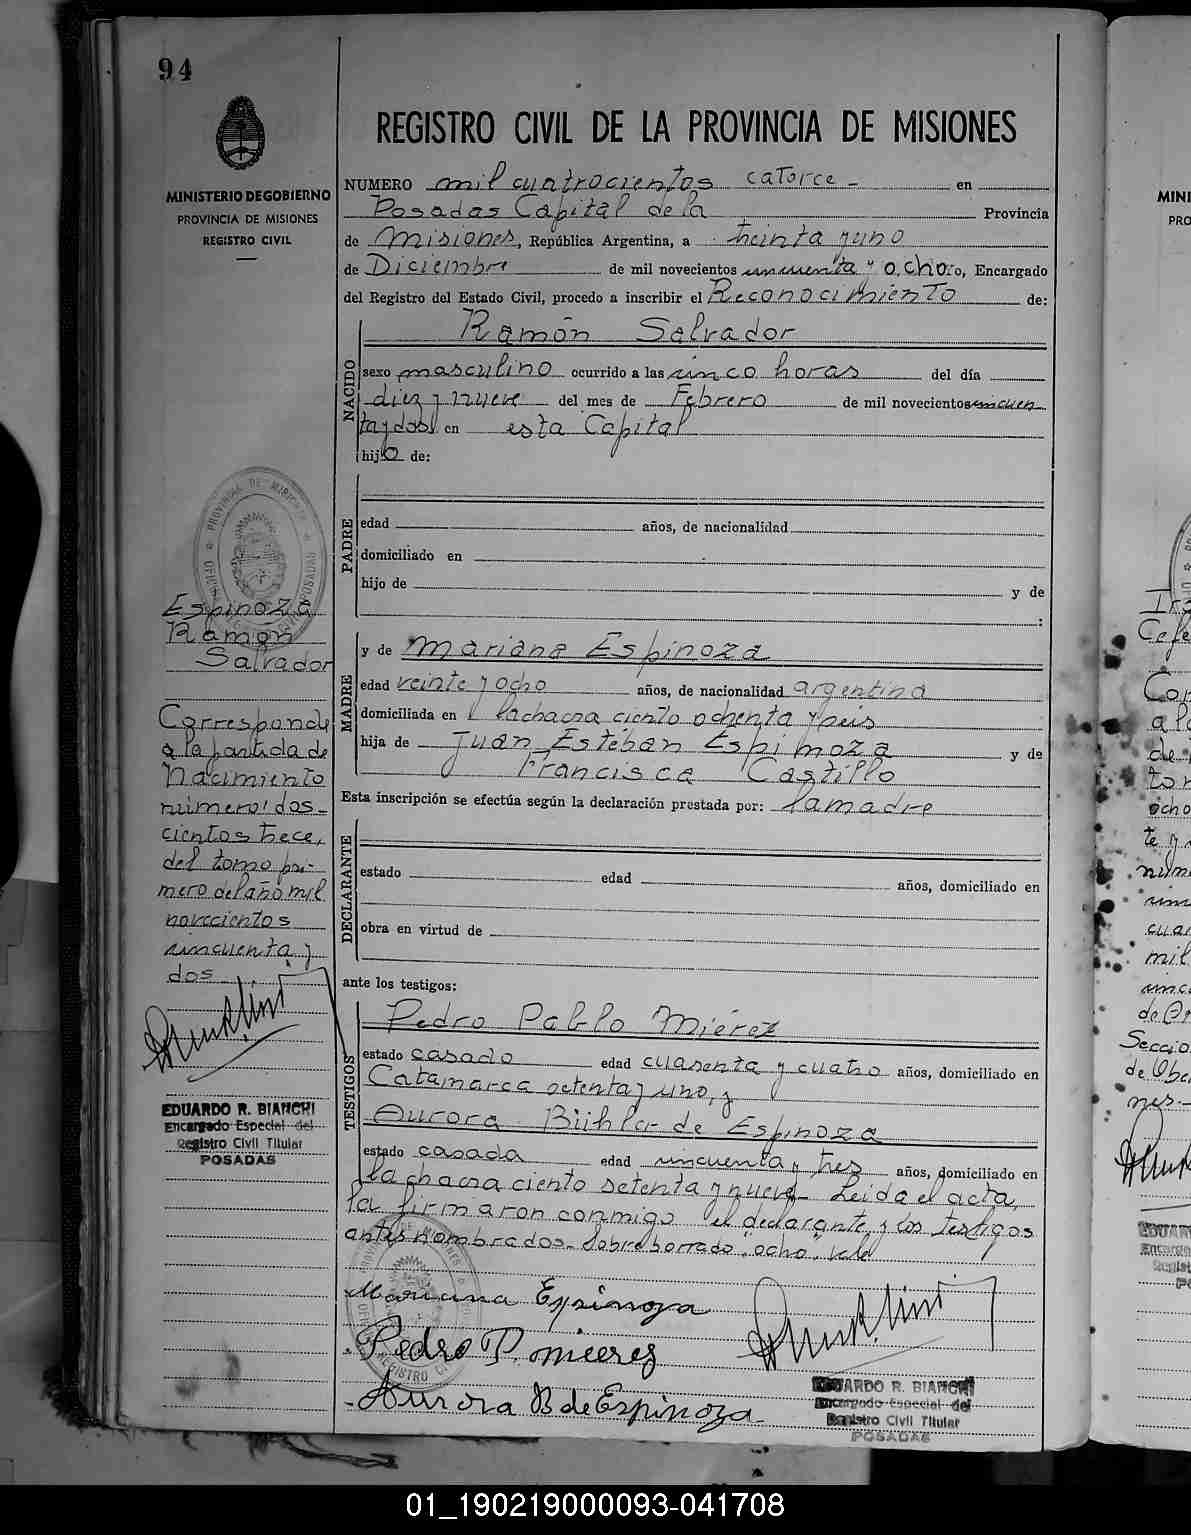 94
MINISTERIO DE GOBIERNO
PROVINCIA DE MISIONES
REGISTRO CIVIL
Espinoza
Ramon
Salvador
Corresponde
a la partida de
Nacimiento
número: dos-
cientos trece,
del tomo pri-
mero del año mil
novecientos
cincuenta y
dos
EDUARDO R. BIANCHI
Encargado Especial del
Registro Civil Titular
POSADAS
REGISTRO CIVIL DE LA PROVINCIA DE MISIONES
NUMERO mil cuatrocientos catorce - en
Posadas Capital de la Provincia
de Misiones, República Argentina, a treinta y uno
de Diciembre de mil novecientos cincuenta y ocho, Encargado
del Registro del Estado Civil, procedo a inscribir el Reconocimiento de:
NACIDO
Ramón Salvador
sexo masculino ocurrido a las cinco horas del día
diez y nueve del mes de Febrero de mil novecientos cincuen
ta y dos en esta Capital
hijo de:
PADRE
edad años, de nacionalidad
domiciliado en
hijo de y de
:
MADRE
y de Mariana Espinoza
edad veinte y ocho años, de nacionalidad argentina
domiciliada en la chacra ciento ochenta y seis
hija de Juan Estéban Espinoza y de
Francisca Castillo
Esta inscripción se efectúa según la declaración prestada por: la madre
DECLARANTE
estado edad años, domiciliado en
obra en virtud de
ante los testigos:
TESTIGOS
Pedro Pablo Miérez
estado casado edad cuarenta y cuatro años, domiciliado en
Catamarca setenta y uno, y
Aurora Bühler de Espinoza
estado casada edad cincuenta y tres años, domiciliado en
la chacra ciento setenta y nueve- Leida el acta,
la firmaron conmigo el declarante y los testigos
antes nombrados- Sobreborrado "ocho" vale
Mariana Espinoza
Pedro P. mierez
Aurora B de Espinoza
EDUARDO R. BIANCHI
Encargado Especial del
Registro Civil Titular
POSADAS
01_190219000093-041708